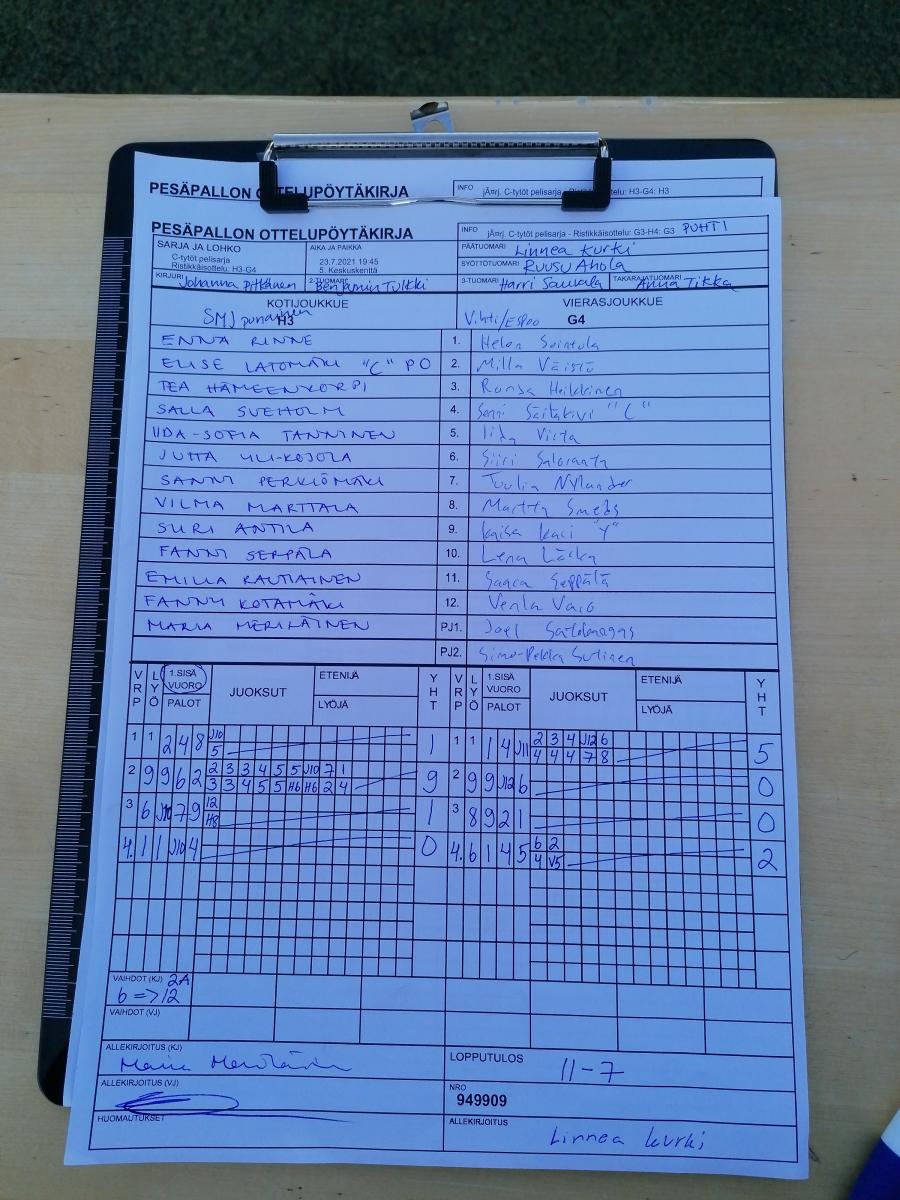 PESÄPALLON OTTELUPÖYTÄKIRJA
INFO jÃ¤rj. C-tytöt pelisarja - Ristikkäisottelu: H3-G4: H3
PESÄPALLON OTTELUPÖYTÄKIRJA
INFO jÃ¤rj. C-tytöt pelisarja - Ristikkäisottelu: G3-H4: G3 PUHTI
SARJA JA LOHKO
C-tytöt pelisarja
Ristikkäisottelu: H3-G4
AIKA JA PAIKKA
23.7.2021 19:45
5. Keskuskenttä
PÄÄTUOMARI Linnea Kurki
SYÖTTÖTUOMARI Ruusu Ahola
KIRJURI Johanna Pitkänen
2-TUOMARI Benjamin Tulkki
3-TUOMARI Harri
TAKARAJATUOMARI Anna Tikka
KOTIJOUKKUE
SMJ punainen H3
VIERASJOUKKUE
Vihti/Espoo G4
ENNA RINNE 1. Helen Sointula
ELISE LATOMÄKI "C" PO 2. Milla Väistö
TEA HÄMEENKORPI 3. Ronsa Heikkinen
SALLA SVEHOLM 4. "C"
IIDA-SOFIA TANNINEN 5. Iida Virta
JUTTA YLI-KOJOLA 6. Siiri Saloranta
SANNI PERKIÖMÄKI 7. Tuulia Nylander
VILMA MARTTALA 8. Martta Smeds
SIIRI ANTILA 9. Kaisa Kaci "Y"
FANNI SEPPÄLÄ 10. Lena
EMILIA RAUTIAINEN 11. Saara Seppälä
FANNY KOTAMÄKI 12. Venla Vaio
MARIA MERILÄINEN PJ1. Joel
PJ2. Simo-Pekka Sutinen
VRP LYÖ 1.SISÄ VUORO PALOT JUOKSUT ETENIJÄ LYÖJÄ YHT VRP LYÖ 1.SISÄ VUORO PALOT JUOKSUT ETENIJÄ LYÖJÄ YHT
1 1 2 4 8 J10 1 1 1 1 4 J11 2 3 4 J12 6 5
5 4 4 4 7 8
2 9 9 6 2 2 3 3 4 5 5 J10 7 1 9 2 9 9 J12 6 0
3 3 4 5 5 H6 H6 2 4
3 6 J10 7 9 12 1 3 8 9 2 1 0
H8
4. 1 1 J10 4 0 4. 6 1 4 5 6 2 2
4 V5
VAIHDOT (KJ) 2A
6 => 12
VAIHDOT (VJ)
ALLEKIRJOITUS (KJ)
LOPPUTULOS 11-7
ALLEKIRJOITUS (VJ)
NRO
949909
HUOMAUTUKSET
ALLEKIRJOITUS
Linnea Kurki